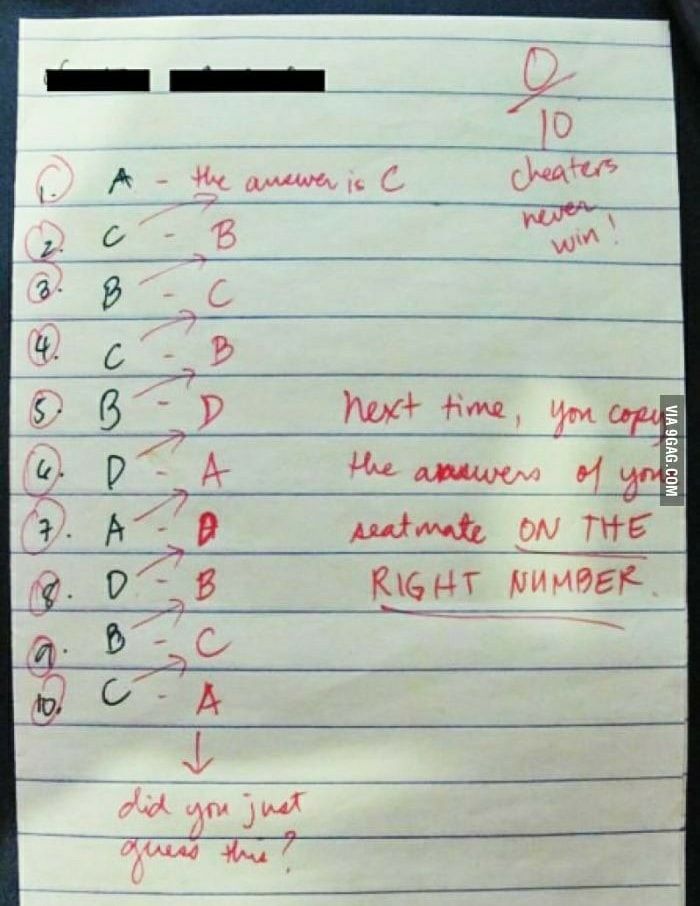 0/10
cheaters
never
win!
1. A - the answer is C
2. C - B
3. B - C
4. C - B
5. B - D
6. D - A
7. A - D
8. D - B
9. B - C
10. C - A
Next time, you copy
the answers of your
seatmate ON THE
RIGHT NUMBER.
did you just
guess this?
VIA 9GAG.COM